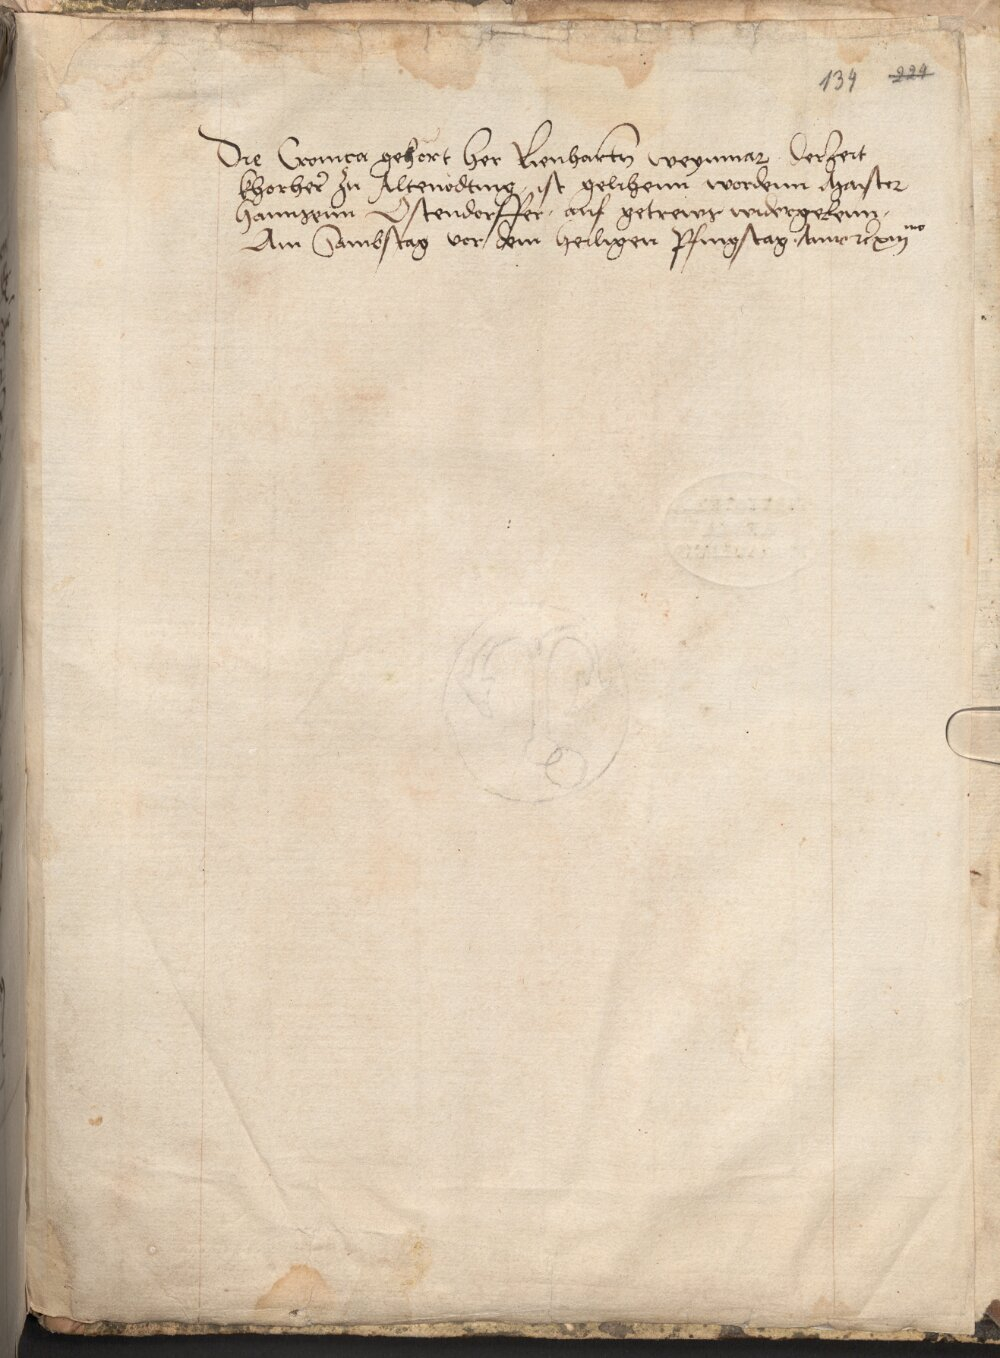 134 224
Die Cronica gehört her Lienhartn Weynmar derzeit
khorher zu Altenödting, ist gelihenn wordenn Maister
Hannsenn Ostendorffer, auf getrewes widergebenn,
Am Sambstag vor dem heiligen Pfingstag